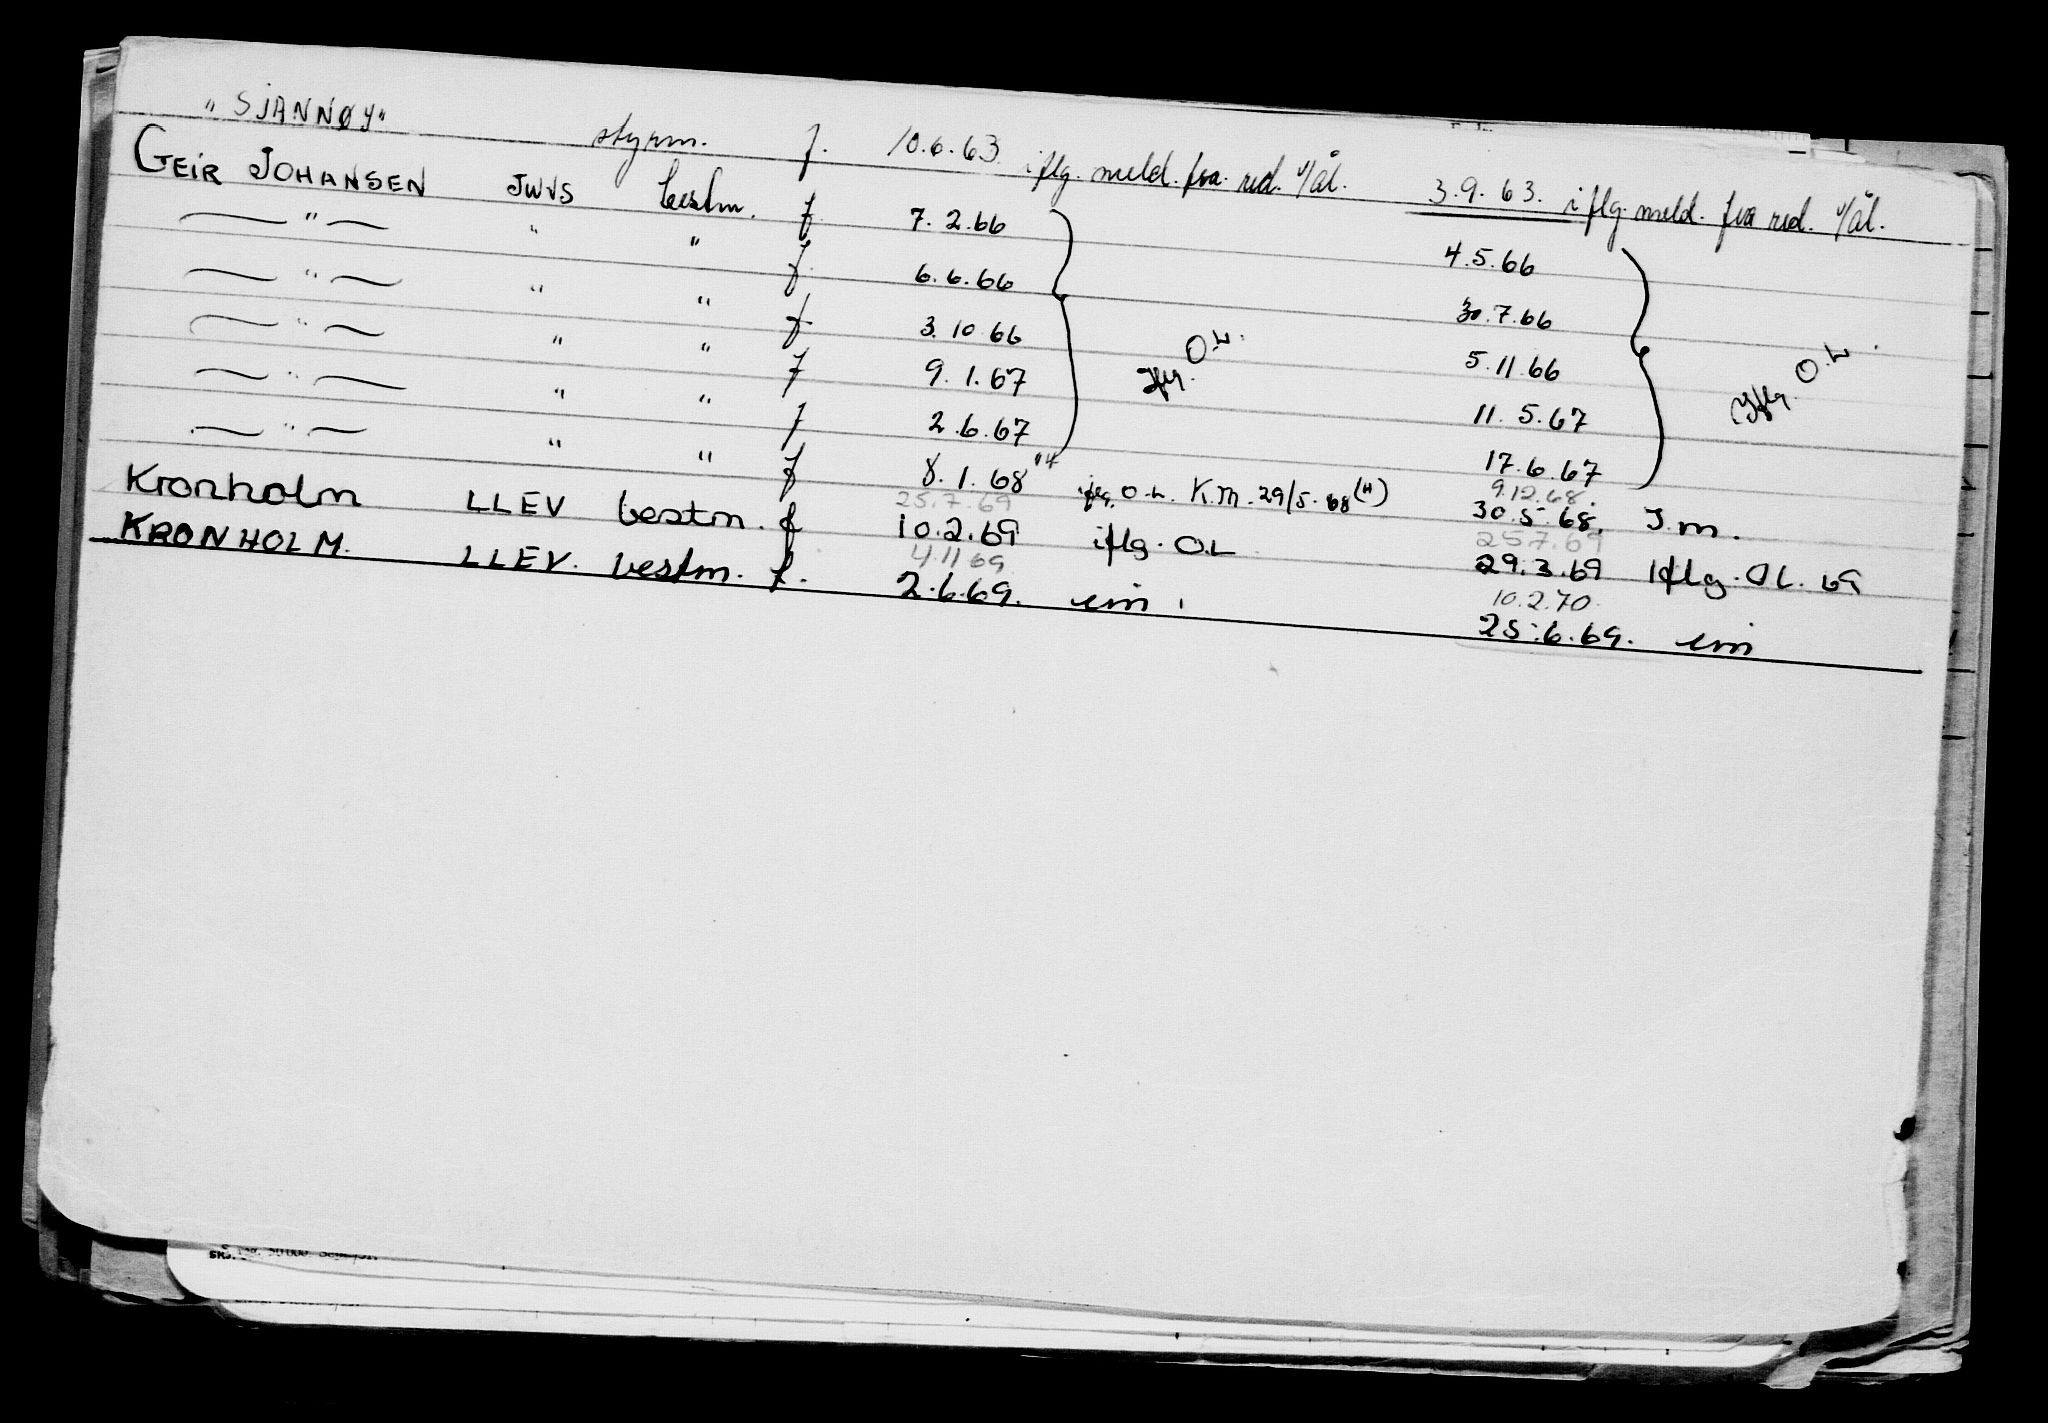 "SJANNØY" styrm. f. 10.6.63 iflg. meld. fra red. v/ål. 3.9.63. iflg. meld. fra red. v/ål.
GEIR JOHANSEN JWVS bestm. f 7.2.66 4.5.66
— " — " " f. 6.6.66 30.7.66
— " — " " f 3.10.66 5.11.66
— " — " " f 9.1.67 11.5.67
— " — " " f 2.6.67 17.6.67
— " — " " f 8.1.68 iflg. O.L. K.M. 29/5.68 (H) 30.5.68. I.m.
Iflg. O.L.
Iflg. O.L.
25.7.69 9.12.68.
Kronholm LLEV bestm. f 10.2.69 iflg. OL 29.3.69 Iflg. OL. 69
4.11.69 25.7.69
KRONHOLM. LLEV. bestm. f. 2.6.69. im. 25.6.69. im
10.2.70.